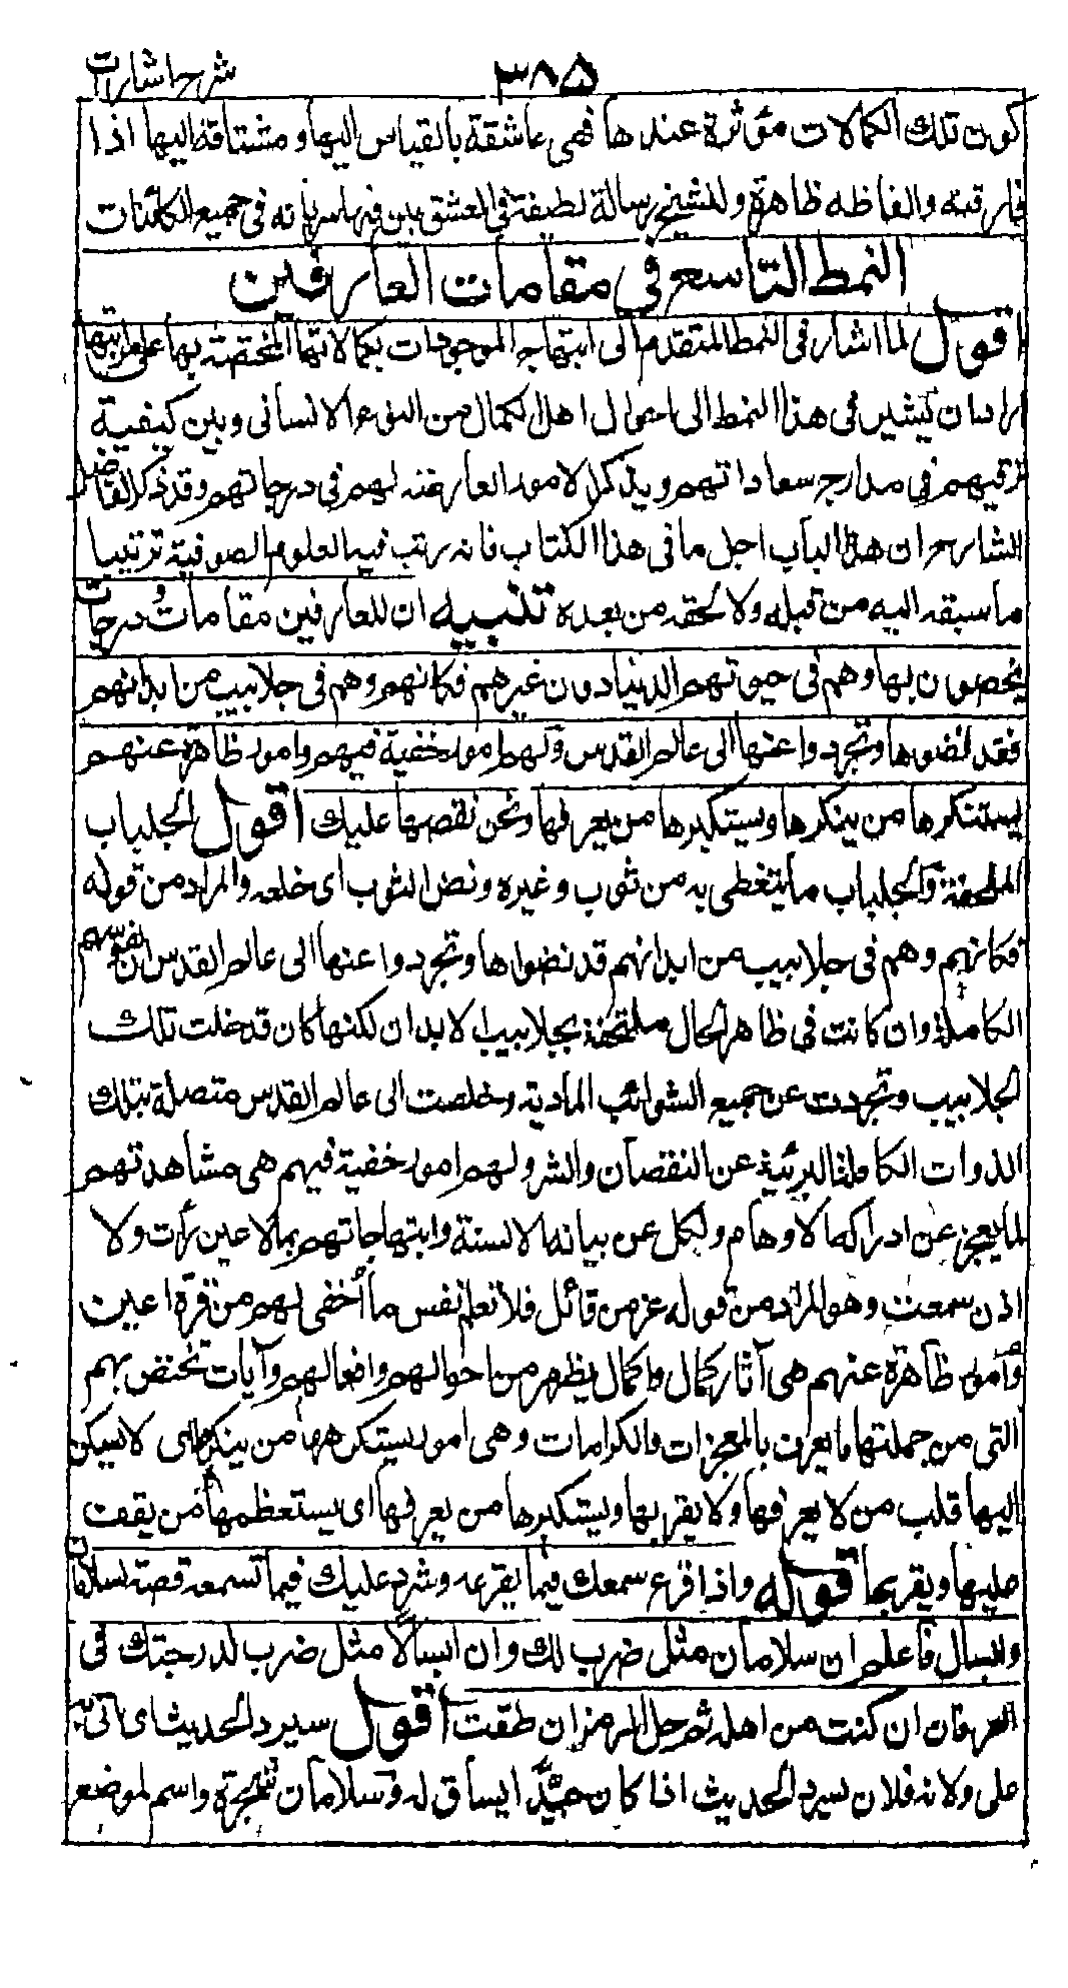 شرح اشارات
٣٨٥
كون تلك الكمالات مؤثرة عندها فهى عاشقة بالقياس اليها ومشتاقة اليها اذا
فارقته والفاظه ظاهرة وللشيخ رسالة لطيفة فى العشق بين فيها سريانه فى جميع الكائنات
النمط التاسع فى مقامات العارفين
اقول لما اشار فى النمط المتقدم الى ابتهاج الموجودات بكمالاتها المختصة بها على مراتبها
اراد ان يشير فى هذا النمط الى احوال اهل الكمال من النوع الانسانى وبين كيفية
ترقيهم فى مدارج سعاداتهم ويذكر الامور العارضة لهم فى درجاتهم وقد ذكر الفاضل
الشارح ان هذا الباب اجل ما فى هذا الكتاب فانه رتب فيه العلوم الصوفية ترتيبا
ما سبقه اليه من قبله ولا لحقه من بعده تنبيه ان للعارفين مقامات ودرجات
يخصون بها وهم فى حيوتهم الدنيا دون غيرهم فكانهم وهم فى جلابيب من ابدانهم
فقد نضوها وتجردوا عنها الى عالم القدس ولهم امور خفية فيهم وامور ظاهرة عنهم
يستنكرها من ينكرها ويستكبرها من يعرفها ونحن نقصها عليك اقول الجلباب
الملحفة والجلباب ما يتغطى به من ثوب وغيره ونض الثوب اى خلعه والمراد من قوله
فكانهم وهم فى جلابيب من ابدانهم قد نضوا ها وتجردوا عنها الى عالم القدس ان نفوسهم
الكاملة وان كانت فى ظاهر الحال ملتحفة بجلابيب الابدان لكنها كان قد خلت تلك
الجلابيب وتجردت عن جميع الشوائب المادية وخلصت الى عالم القدس متصلة بتلك
الذوات الكاملة البريئة عن النقصان والشر ولهم امور خفية فيهم هى مشاهدتهم
لما يعجز عن ادراكه الاوهام ويكل عن بيانه الالسنة وابتهاجاتهم بما لا عين رأت ولا
اذن سمعت وهو المراد من قوله عز من قائل فلا تعلم نفس ما أخفى لهم من قرة اعين
وأمور ظاهرة عنهم هى آثار كمال واكمال يظهر من احوالهم وافعالهم وآيات تختص بهم
التى من جملتها ما يعرف بالمعجزات والكرامات وهى امور يستنكرها من ينكرها اى لا يسكن
اليها قلب من لا يعرفها ولا يقر بها ويستكبرها من يعرفها اى يستعظمها من يقف
عليها ويقر بها قوله واذا قرع سمعك فيما يقرعه وسرد عليك فيما تسمعه قصة لسلامان
وابسال فاعلم ان سلامان مثل ضرب لك وان ابسالا مثل ضرب لدرجتك فى
العرفان ان كنت من اهله ثم حل الرمز ان طقت اقول سرد الحديث اى اتى به
على ولائه فلان يسرد الحديث اذا كان جيد السياق له وسلامان شجرة واسم لموضع